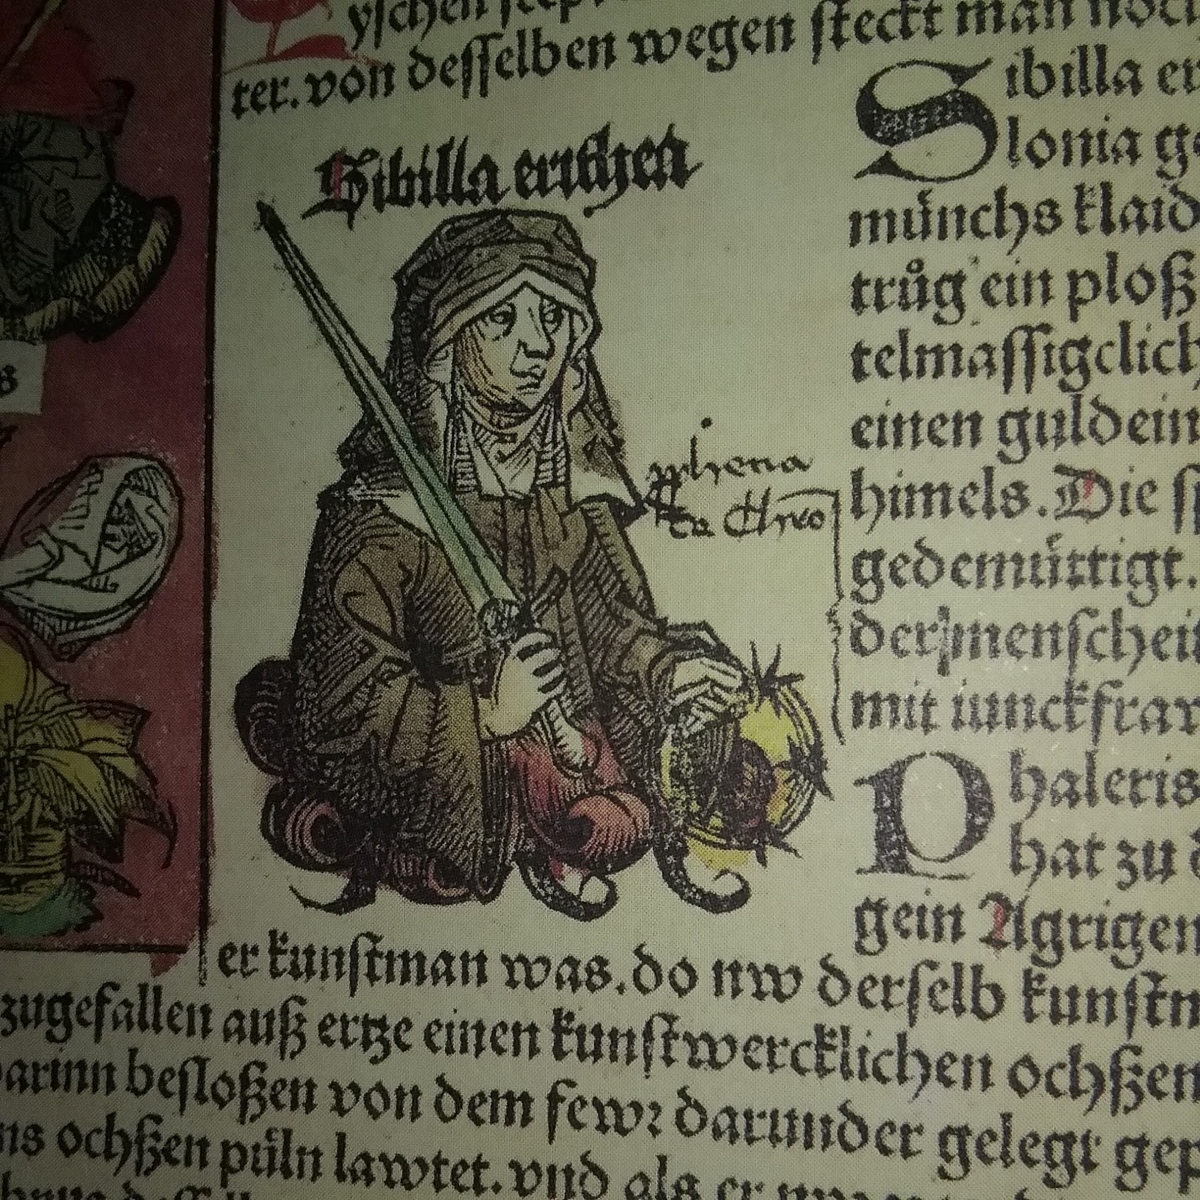 yschen
ter. von desselben wegen steckt man noch
Sibilla erithea
Sibilla er
lonia ge
münchs klaid
trůg ein ploß
telmassigclich
einen guldein
himels. Die si
gedemüttigt.
der menscheit
mit iunckfraw
Phaleris
hat zu
gein Agrigen
er kunstman was. do nw derselb kunstm
zugefallen auß ertze einen kunstwercklichen ochßen
arinn besloßen von dem fewr darunder gelegt gep
ns ochßen püln lawtet. vnd als er